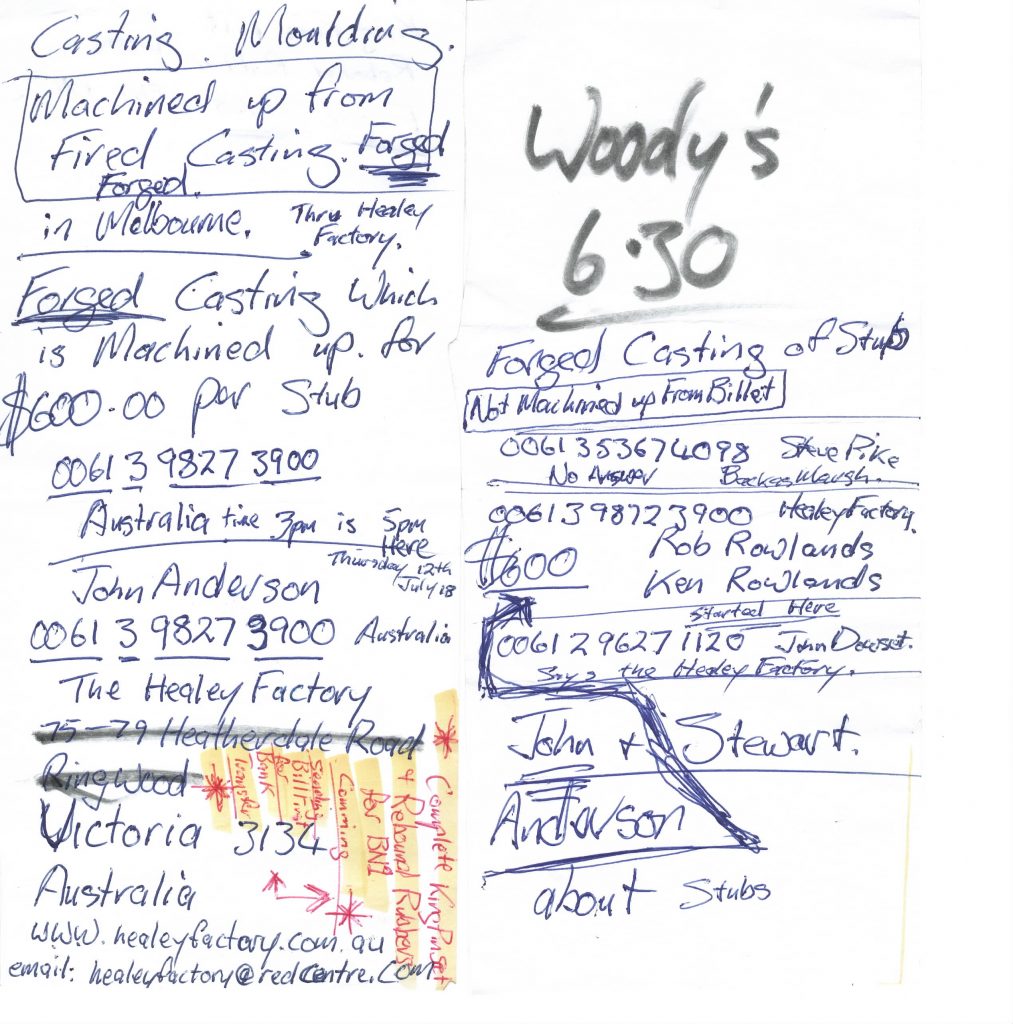 Casting. Moulding.
Machined up from
Fired Casting. Forged
Forged.
in Melbourne. Thru Healey
Factory.
Forged Casting Which
is Machined up. for
$600.00 per Stub
0061 3 9827 3900
Australia time 3pm is 5pm
Here
Thursday 12th
July 18
John Anderson
0061 3 9827 3900 Australia
The Healey Factory
75-79 Heatherdale Road
Ringwood
Victoria 3134
Australia
www.healeyfactory.com.au
email: healeyfactory@redcentre.com
* Complete KingPinset
& Rebound Rubbers
for BN1
Comming
Sending
Bill First
for
Bank
Transfer
Woody's
6.30
Forged Casting of Stub
Not Machined up From Billet
0061353674098 Steve Pike
No Answer Backas Marsh.
0061398723900 Healey Factory.
$600 Rob Rowlands
Ken Rowlands
Started Here
0061296271120 John Dowset.
Says the Healey Factory.
John & Stewart.
Anderson
about Stubs